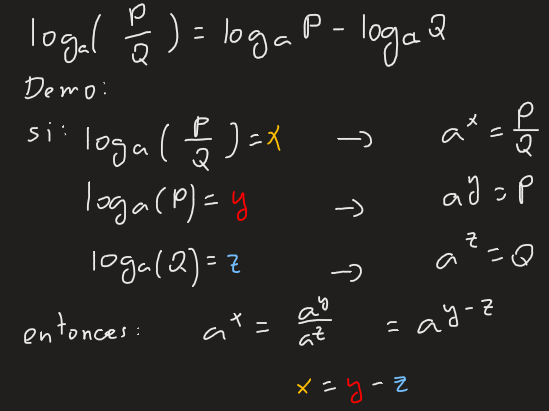 logₐ( P/Q ) = logₐ P - logₐ Q
Demo:
si: logₐ( P/Q ) = x → aˣ = P/Q
logₐ(P) = y → aʸ = P
logₐ(Q) = z → aᶻ = Q
entonces: aˣ = aʸ/aᶻ = aʸ⁻ᶻ
x = y - z